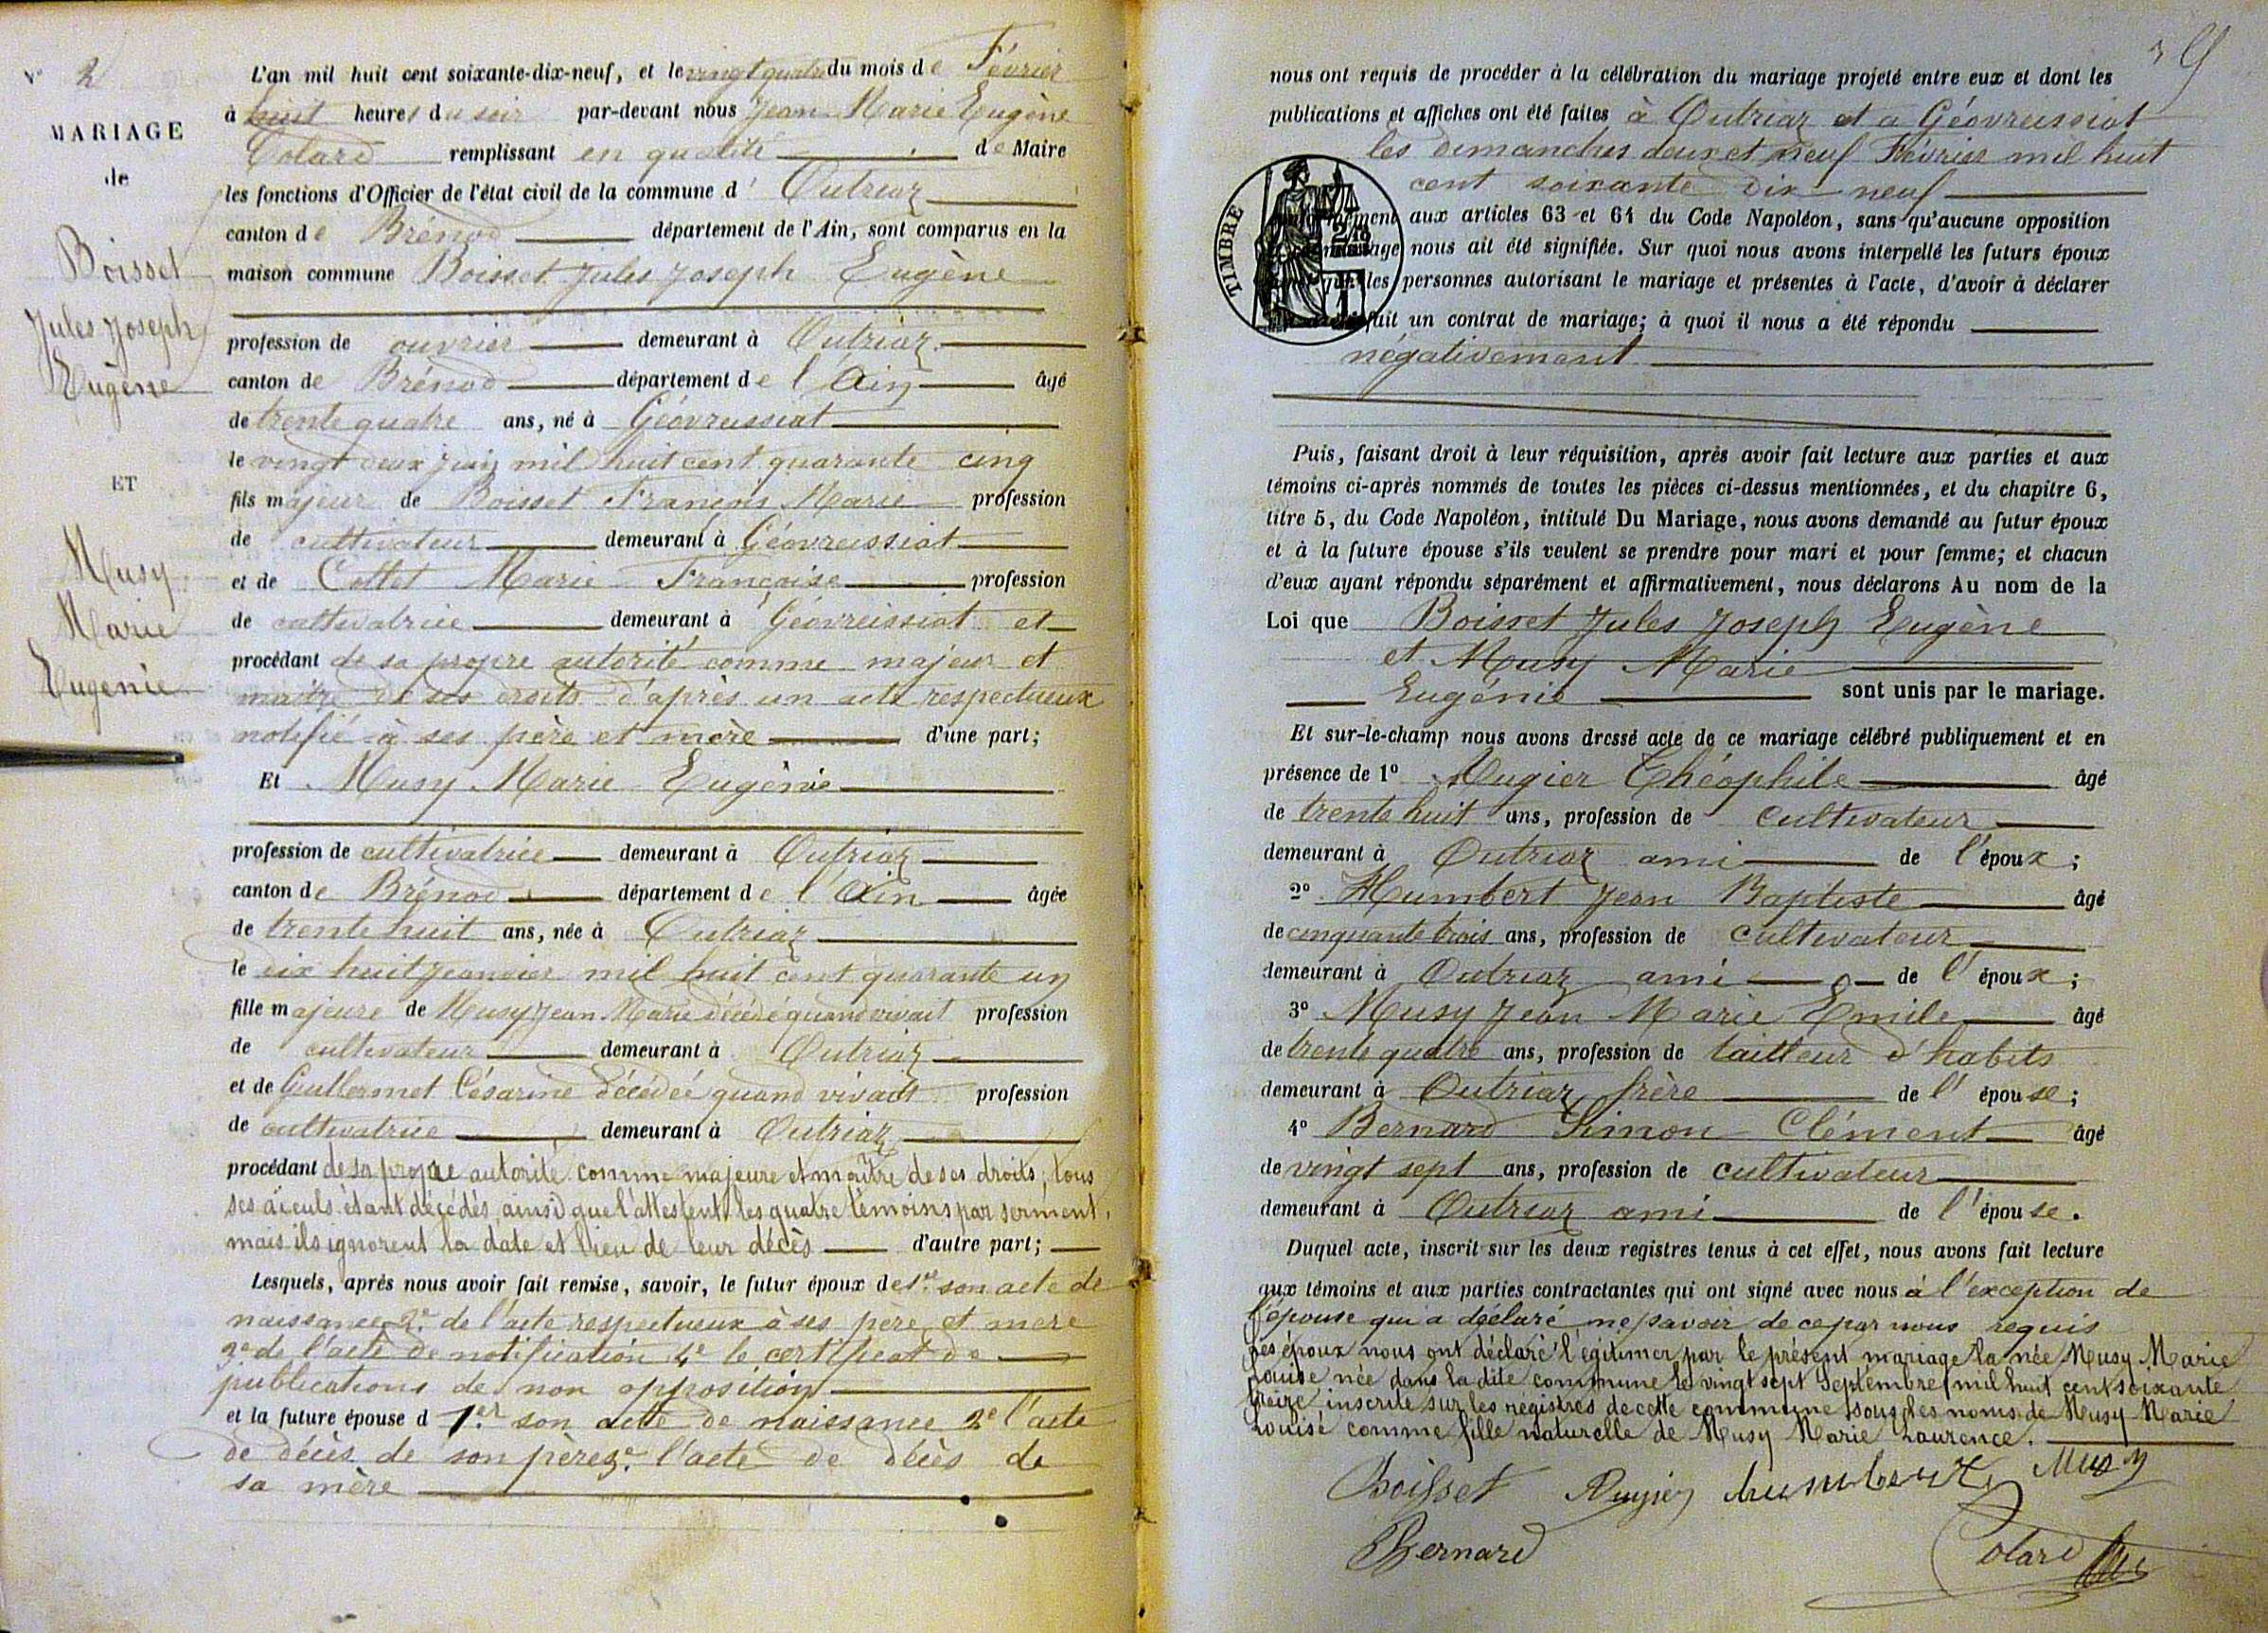 N° 2
MARIAGE
de
Boisset
Jules Joseph
Eugène
ET
Musy
Marie
Eugenie
L'an mil huit cent soixante-dix-neuf, et le vingt quatre du mois de Février
à huit heures du soir par-devant nous Jean Marie Eugène
Colard remplissant en qualité de Maire
les fonctions d'Officier de l'état civil de la commune d' Outriaz
canton de Brénod département de l'Ain, sont comparus en la
maison commune Boisset Jules Joseph Eugène
profession de ouvrier demeurant à Outriaz
canton de Brénod département de l'Ain âgé
de trente quatre ans, né à Géovreissiat
le vingt deux juin mil huit cent quarante cinq
fils majeur de Boisset François Marie profession
de cultivateur demeurant à Géovreissiat
et de Collet Marie Françoise profession
de cultivatrice demeurant à Géovreissiat et
procédant de sa propre autorité comme majeur et
maître de ses droits d'après un acte respectueux
notifié à ses père et mère d'une part;
Et Musy Marie Eugénie
profession de cultivatrice demeurant à Outriaz
canton de Brénod département de l'Ain âgée
de trente huit ans, née à Outriaz
le dix huit Janvier mil huit cent quarante un
fille majeure de Musy Jean-Marie décédé quand vivait profession
de cultivateur demeurant à Outriaz
et de Guillermet Césarine décédée quand vivait profession
de cultivatrice demeurant à Outriaz
procédant de sa propre autorité comme majeure et maître de ses droits, tous
ses aïeuls étant décédés ainsi que l'attestent les quatre témoins par serment,
mais ils ignorent la date et lieu de leur décès d'autre part;
Lesquels, après nous avoir fait remise, savoir, le futur époux de 1° son acte de
naissance 2° de l'acte respectueux à ses père et mère
3° de l'acte de notification 4° le certificat de
publications de non opposition
et la future épouse d 1er son acte de naissance 2e l'acte
de décès de son père 3e l'acte de décès de
sa mère
nous ont requis de procéder à la célébration du mariage projeté entre eux et dont les
publications et affiches ont été faites à Outriaz et a Géovreissiat
les dimanches deux et neuf Février mil huit
cent soixante dix neuf
TIMBRE
aux articles 63 et 64 du Code Napoléon, sans qu'aucune opposition
nous ait été signifiée. Sur quoi nous avons interpellé les futurs époux
les personnes autorisant le mariage et présentes à l'acte, d'avoir à déclarer
fait un contrat de mariage; à quoi il nous a été répondu
négativement
Puis, faisant droit à leur réquisition, après avoir fait lecture aux parties et aux
témoins ci-après nommés de toutes les pièces ci-dessus mentionnées, et du chapitre 6,
titre 5, du Code Napoléon, intitulé Du Mariage, nous avons demandé au futur époux
et à la future épouse s'ils veulent se prendre pour mari et pour femme; et chacun
d'eux ayant répondu séparément et affirmativement, nous déclarons Au nom de la
Loi que Boisset Jules Joseph Eugène
et Musy Marie
Eugénie sont unis par le mariage.
Et sur-le-champ nous avons dressé acte de ce mariage célébré publiquement et en
présence de 1° Mugier Théophile âgé
de trente huit ans, profession de cultivateur
demeurant à Outriaz ami de l'époux;
2° Humbert Jean Baptiste âgé
de cinquante trois ans, profession de cultivateur
demeurant à Outriaz ami de l'époux;
3° Musy Jean Marie Emile âgé
de trente quatre ans, profession de tailleur d'habits
demeurant à Outriaz frère de l'épouse;
4° Bernard Simon Clément âgé
de vingt sept ans, profession de cultivateur
demeurant à Outriaz ami de l'épouse.
Duquel acte, inscrit sur les deux registres tenus à cet effet, nous avons fait lecture
aux témoins et aux parties contractantes qui ont signé avec nous à l'exception de
l'épouse qui a déclaré ne savoir de ce par nous requis
les époux nous ont déclaré légitimer par le présent mariage la née Musy Marie
Louise née dans la dite commune le vingt sept Septembre mil huit cent soixante
treize inscrite sur les régistres de cette commune sous les noms de Musy Marie
Louise comme fille naturelle de Musy Marie Laurence.
Boisset Mugier humbert Musy
Bernard Colard